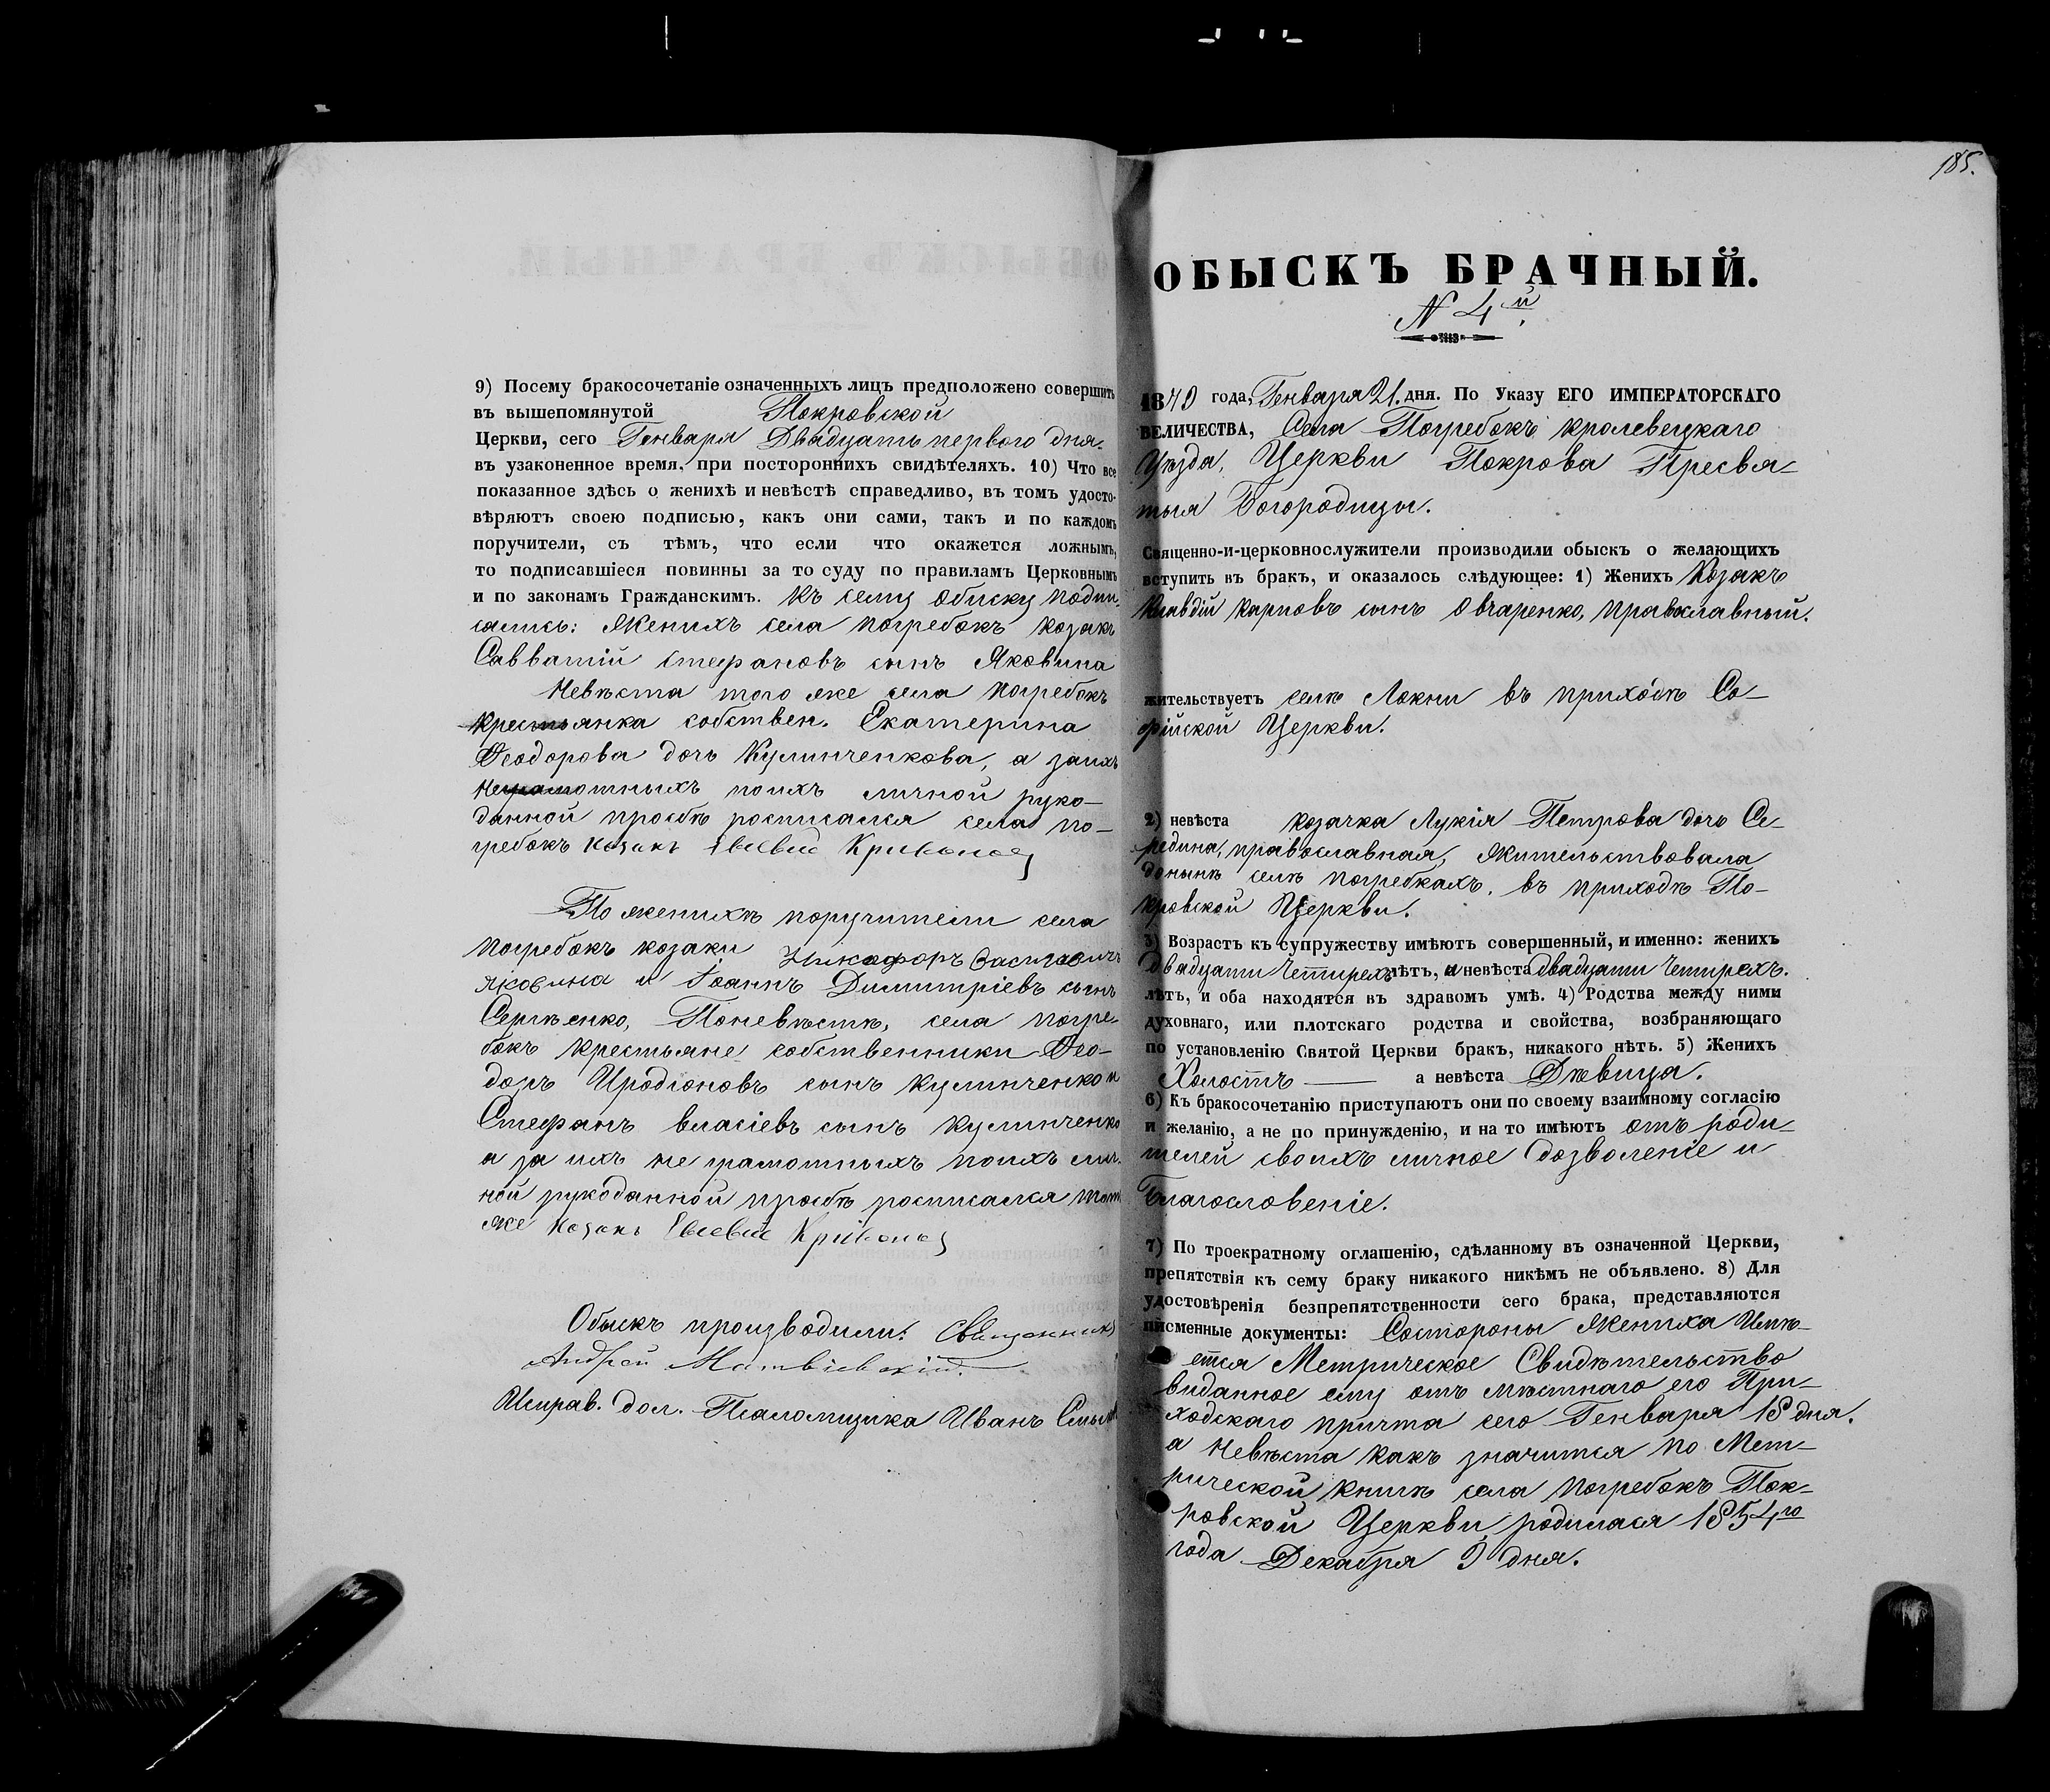 9) Посему бракосочетаніе означенныхъ лицъ предположено совершить
въ вышепомянутой Покровской
Церкви, сего Генваря Двадцать первого дня.
въ узаконенное время, при постороннихъ свидѣтеляхъ. 10) Что все
показанное здѣсь о женихѣ и невѣстѣ справедливо, въ томъ удосто-
вѣряютъ своею подписью, какъ они сами, такъ и по каждомъ
поручители, съ тѣмъ, что если что окажется ложнымъ,
то подписавшіеся повинны за то суду по правиламъ Церковнымъ
и по законамъ Гражданскимъ. Къ сему обиску подпи-
сались: Женихъ села Погребокъ козакъ
Савватій Стефановъ сынъ Яковина
Невѣста того же села Погребокъ
крестьянка собствен. Екатерина
Феодорова дочь Кулинченкова, а заихъ
неграмотныхъ поихъ личной руко-
данной просьбѣ росписался села По-
гребокъ козакъ Евсевій Кривонос
По женихѣ поручители села
Погребокъ козаки Никифоръ Васильевичъ
Яковина и Іоаннъ Димитріевъ сынъ
Сергѣенко, Поневѣстѣ, села Погре-
бокъ крестьяне собственники Фео-
доръ Иродіоновъ сынъ Кулинченко и
Стефанъ Власіевъ сынъ Кулинченко
а за ихъ не грамотныхъ поихъ лич-
ной рукоданной просьбѣ росписался тот
же козакъ Евсевій Кривонос
Обыскъ производили: Священникъ
Андрей Матвіевскій.
Исправ. дол. Псаломщика Иванъ
185.
ОБЫСКЪ БРАЧНЫЙ.
N 4й
1879 года, Генваря 21. дня. По Указу ЕГО ИМПЕРАТОРСКАГО
ВЕЛИЧЕСТВА, Села Погребокъ Кролевецкаго
Уѣзда, Церкви Покрова Пресвя-
тыя Богородицы.
Священно-и-церковнослужители производили обыскъ о желающихъ
вступить въ бракъ, и оказалось слѣдующее: 1) Женихъ Козакъ
Клавдій Карповъ сынъ Овчаренко, православный.
жительствуетъ селѣ Локни въ приходѣ Со-
фійской Церкви.
2) невѣста козачка Лукія Петрова дочь Се-
редина, православная, жительствовала
донынѣ селѣ Погребкахъ, въ приходѣ По-
кровской Церкви.
3) Возрастъ къ супружеству имѣютъ совершенный, и именно: женихъ
двадцати четирехъ лѣтъ, и невѣста двадцати четирехъ.
лѣтъ, и оба находятся въ здравомъ умѣ. 4) Родства между ними
духовнаго, или плотскаго родства и свойства, возбраняющаго
по установленію Святой Церкви бракъ, никакого нѣтъ. 5) Женихъ
Холостъ а невѣста Дѣвица.
6) Къ бракосочетанію приступаютъ они по своему взаимному согласію
и желанію, а не по принужденію, и на то имѣютъ отъ роди-
телей своихъ личное дозволеніе и
Благословеніе.
7) По троекратному оглашенію, сдѣланному въ означенной Церкви,
препятствія къ сему браку никакого никѣмъ не объявлено. 8) Для
удостовѣренія безпрепятственности сего брака, представляются
писменные документы: Состороны Жениха Имѣ-
ется Метрическое Свидѣтельство
виданное ему отъ мѣстнаго его При-
ходскаго причта сего Генваря 18 дня.
а Невѣста какъ значится по Мет-
рической книгѣ села Погребокъ Пок-
ровской Церкви, родилася 1854го
года Декабря 9 дня.